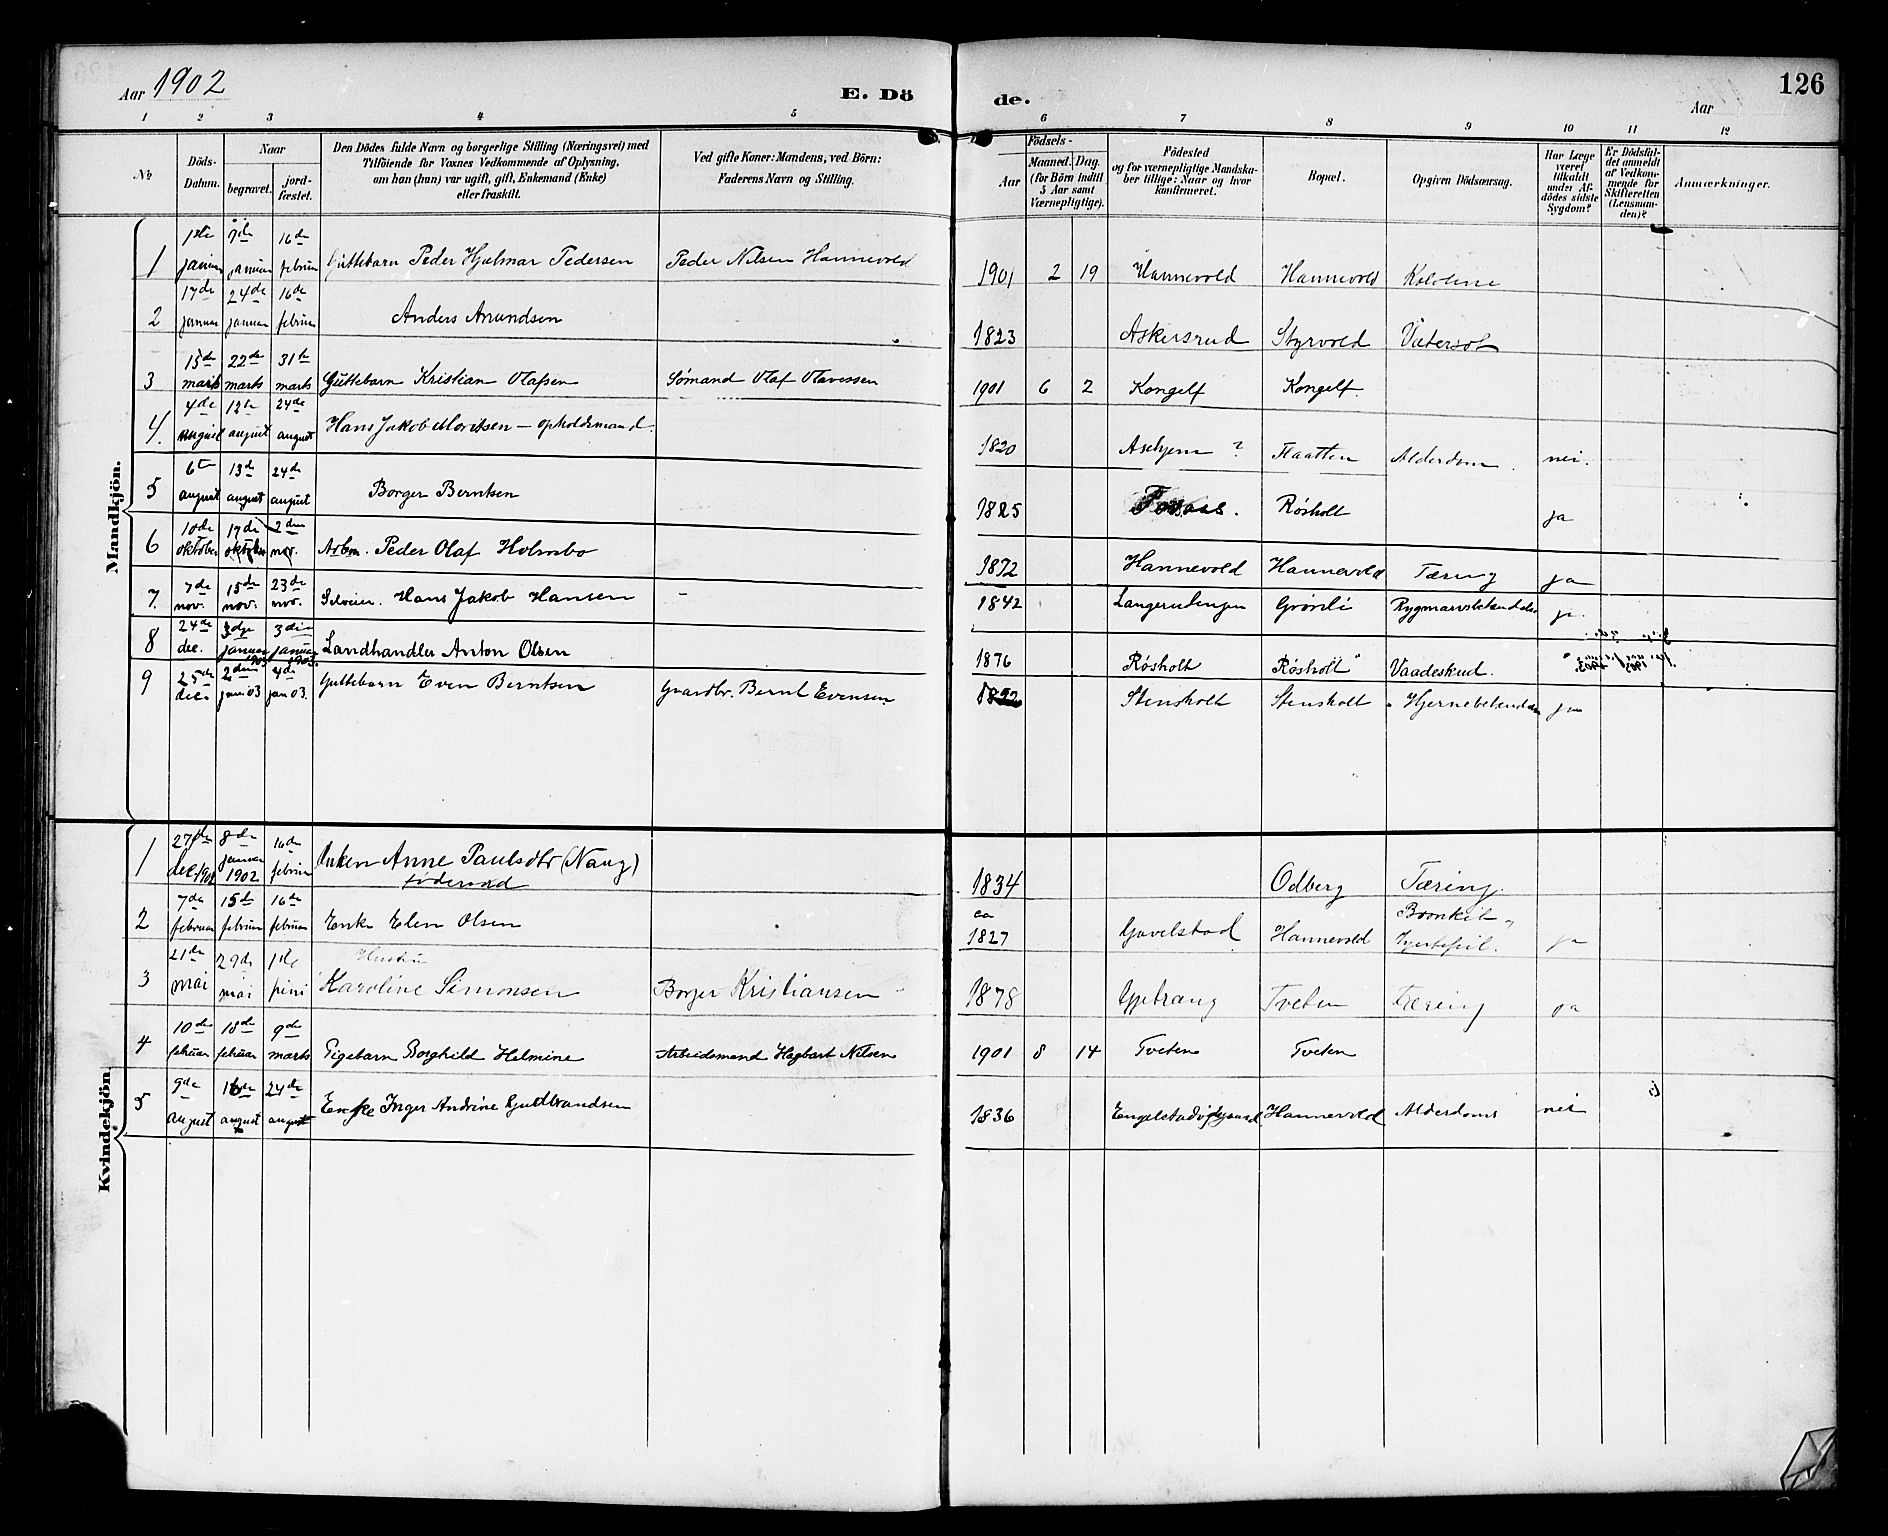 Aar 1902
E. Dö de.
Aar
126
1 2 3 4 5 6 7 8 9 10 11 12
No
Döds-Datum.
Naar
begravet.
jord-fæstet.
Den Dödes fulde Navn og borgerlige Stilling (Næringsvei) med
Tilföiende for Voxnes Vedkommende af Oplysning,
om han (hun) var ugift, gift, Enkemand (Enke)
eller fraskilt.
Ved gifte Koner: Mandens, ved Börn:
Faderens Navn og Stilling.
Födsels-
Aar
Maaned. Dag.
(for Börn indtil
5 Aar samt
Værnepligtige).
Födested
og for værnepligtige Mandska-
ber tillige: Naar og hvor
konfirmeret.
Bopæl.
Opgiven Dödsaarsag.
Har Læge
været
tilkaldt
under Af-
dödes sidste
Sygdom?
Er Dödsfal-
det anmeldt
af Vedkom-
mende for
Skifteretten
(Lensman-
den)?
Anmærkninger.
Mandkjön.
1 1ste januar 9de januar 16de februar Guttebarn Peder Hjalmar Pedersen Peder Nilsen Hannevold 1901 2 19 Hannevold Hannevold
2 17de januar 24de januar 16de februar Anders Amundsen 1823 Askersrud Styrvold Vatersot
3 15de marts 22de marts 31te marts Guttebarn Kristian Olafsen Sømand Olaf Olavessen 1901 6 2 Kongelf Kongelf.
4. 4de august 12te august 24de august Hans Jakob Moritsen - opholdsmand. 1820 Aschjem ? Flaatten Alderdom. nei.
5 6te august 13de august 24de august Borger Berntsen 1825 Røsholt ja
6 10de oktober 17de oktober 2den nov. Arbm. Peder Olaf Holmsbo 1872 Hannevold Hannevold Tæring ja
7. 7de nov. 15de nov. 23de nov. Selveier. Hans Jakob Hansen - 1842 Grønli ja
8 24de dec. 3dje januar 1903 3die januar 1903. Landhandler Anton Olsen 1876 Røsholt Røsholt Vaadeskud.
9 25de dec. 2den jan 03 4de jan 03. Guttebarn Even Berntsen Gaardbr. Bernt Evensen Stensholt Stensholt ja
Kvindekjön.
1 27de dec 1901 8de januar 1902 16de februar Enken Anne Paulsdtr (Naug) føderaad 1834 Odberg Tæring.
2 7de februar 15de februar 16de februar Enke Elen Olsen ca 1827 Gavelstad Hannevold ja
3 21de mai 29de mai 1ste juni Hustru Karoline Simonsen Borger Kristiansen 1878 Tveten Tæring ja
4 10de februar 18de februar 9de marts Pigebarn Borghild Helmine Arbeidsmand Hagbart Nilsen 1901 8 14 Tveten Tveten
5 9de august 16de august 24de august Enke Inger Andrine Guldbrandsen 1836 Hannevold Alderdoms nei